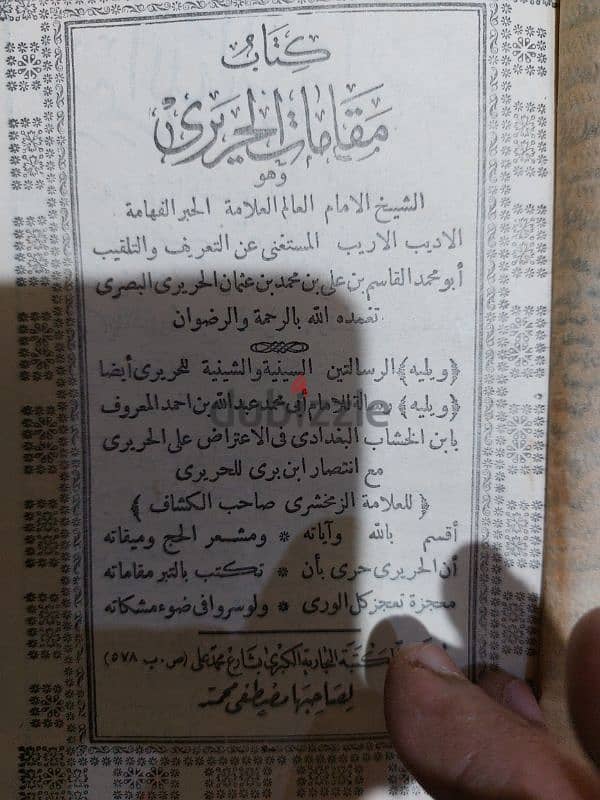 كِتَابُ
مقامات الحريرى
وهو
الشيخ الامام العالم العلامة الحبر الفهامة
الاديب الاريب المستغنى عن التعريف والتلقيب
أبو محمد القاسم بن على بن محمد بن عثمان الحريرى البصرى
تغمده الله بالرحمة والرضوان
﴿ويليه﴾ الرسالتين السينية والشينية للحريرى أيضا
﴿ويليه﴾ رسالة للامام أبى محمد عبد الله بن احمد المعروف
بابن الخشاب البغدادى فى الاعتراض على الحريرى
مع انتصار ابن برى للحريرى
﴿ للعلامة الزمخشرى صاحب الكشاف ﴾
أقسم بالله وآياته * ومشعر الحج وميقاته
أن الحريرى حرى بأن * تكتب بالتبر مقاماته
معجزة تعجز كل الورى * ولو سروا فى ضوء مشكاته
المكتبة التجارية الكبرى بشارع محمد على (ص.ب ٥٧٨)
لصاحبها مصطفى محمد
dubizzle